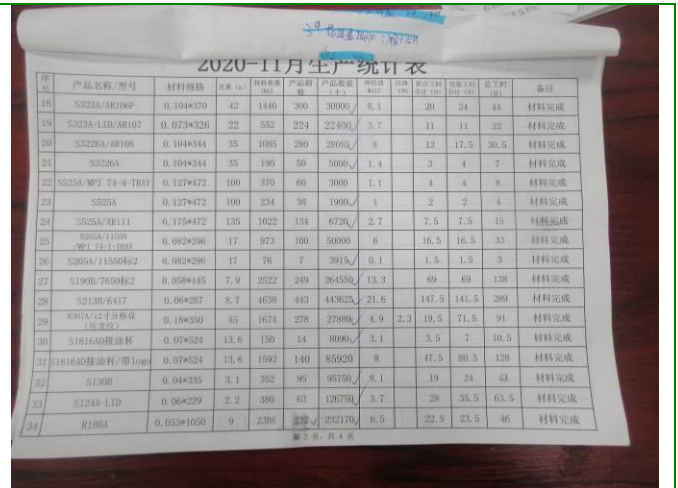 2020-11月生产统计表
序号 产品名称/型号 材料规格 克重(g) 材料重量(KG) 产品箱数 产品数量(个) 机台工时合计(H) 包装工时合计(H) 总工时(H) 备注
18 S323A/AR106P 0.104*370 42 1440 300 30000 8.1 20 24 44 材料完成
19 S323A-LID/AR107 0.073*326 22 552 224 22400 3.7 11 11 22 材料完成
20 S3226A/AR108 0.104*344 35 1085 280 28085 8 13 17.5 30.5 材料完成
21 S3226A 0.104*344 35 190 50 5000 1.4 3 4 7 材料完成
22 S525A/MPI 74-4-TRAY 0.127*472 100 370 60 3000 1.1 4 4 8 材料完成
23 S525A 0.127*472 100 234 38 1900 1 2 2 4 材料完成
24 S525A/AR111 0.175*472 135 1022 134 6720 2.7 7.5 7.5 15 材料完成
25 S205A/11550/MPI 74-1-TRAY 0.082*296 17 973 100 50000 6 16.5 16.5 33 材料完成
26 S205A/11550标2 0.082*296 17 76 7 3915 0.1 1.5 1.5 3 材料完成
27 S190B/7650标2 0.058*445 7.9 2522 249 264550 13.3 69 69 138 材料完成
28 S213B/6417 0.06*287 8.7 4638 443 443625 21.6 147.5 141.5 289 材料完成
29 R307A/12寸分格值 0.18*350 45 1674 278 27880 4.9 2.3 19.5 71.5 91 材料完成
30 S1816AD接油杯 0.07*524 13.6 150 14 8090 3.1 3.5 7 10.5 材料完成
31 S1816AD接油杯/带logo 0.07*524 13.6 1592 140 85920 8 47.5 80.5 128 材料完成
32 S130B 0.04*335 3.1 352 95 95750 8.1 19 24 43 材料完成
33 S124A-LID 0.06*229 2.2 380 63 126750 3.7 28 35.5 63.5 材料完成
34 R180A 0.053*1050 9 2386 232 232170 6.5 22.5 23.5 46 材料完成
第 2 页，共 4 页